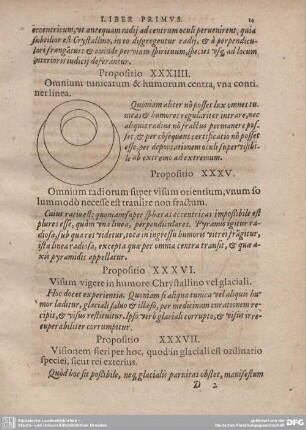 LIBER PRIMVS.
eccentricum, vt antequam radij ad centrum oculi perueniret, quia
subsisteret Crystallino, in eo disgregentur radij, & à perpendicu-
lari frangātur: & exinde per viam spirituum, species vsq; ad locum
interioris iudicij deferantur.
Propositio XXXIIII.
Omnium tunicarum & humorum centra, vna conti
net linea.
Quoniam aliter nō posset lux omnes tu
nicas & humores regulariter intrare, nec
aliquus radius nō fractus permanere pos
set, & per cōsequens certificatio nō posset
esse, per deportationem oculi super visibi-
le ab extremo ad extremum.
Propositio XXXV.
Omnium radiorum super visum orientium, vnum so
lummodò necesse est transire non fractum.
Cuius ratio est: quoniam super sphæras eccentricas impossibile est
plures esse, quàm vna linea, perpendiculares. Pyramis igitur ra-
diosa, sub qua res videtur, tota in ingressu humoris vitrei frāgitur,
ista linea radiosa, excepta que per omnia centra transit, & quæ a-
xis pyramidis appellatur.
Propositio XXXVI.
Visum vigere in humore Chrystallino vel glaciali.
Hoc docet experientia. Quoniam si aliqua tunica vel aliquis hu-
mor lædatur, glaciali saluo & illæso, per medicinam curationem re-
cipit, & visus restituitur. Ipso verò glaciali corrupto, & visus irre-
cuperabiliter corrumpitur.
Propositio XXXVII.
Visionem fieri per hoc, quod in glaciali est ordinatio
speciei, sicut rei exterius.
Quod hoc sit possibile, neq; glacialis paruitas obstet, manifestum
D 2